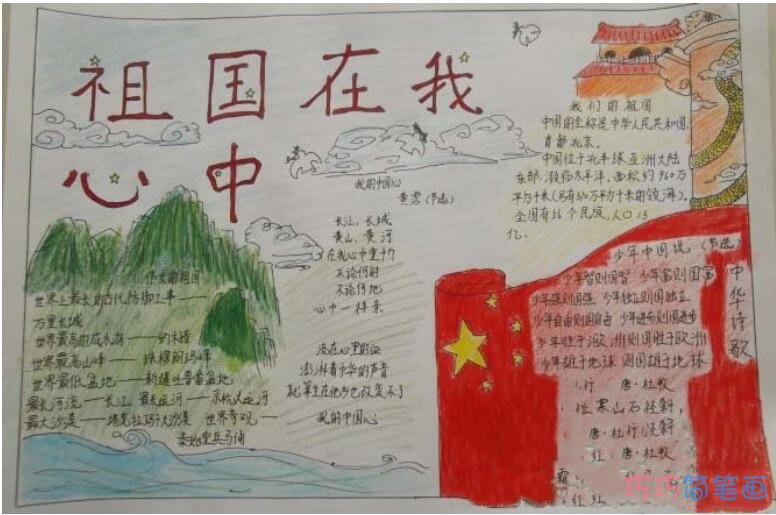 祖国在我
心中
我的中国心
黄霑(节选)
长江,长城
黄山,黄河
在我心中重千斤
不论何时
不论何地
心中一样亲
流在心里的血
澎湃着中华的声音
就算生在他乡也改变不了
我的中国心
我们的祖国
中国的全称是中华人民共和国,
首都北京。
中国位于北半球亚洲大陆
东部,濒临太平洋,面积约960万
平方千米(另有300万平方千米的领海)。
全国有56个民族,人口13
亿。
伟大的祖国
世界上最长的古代防御工事——
万里长城
世界最高的咸水湖——纳木错
世界最高山峰——珠穆朗玛峰
世界最低盆地——新疆吐鲁番盆地
最长河流——长江 最长运河——京杭大运河
最大沙漠——塔克拉玛干大沙漠 世界奇观——
秦始皇兵马俑
少年中国说(节选)
少年智则国智 少年富则国富
少年强则国强 少年独立则国独立
少年自由则国自由 少年进步则国进步
少年胜于欧洲则国胜于欧洲
少年雄于地球则国雄于地球
中华诗歌
行 唐·杜牧
寒山石径斜,
唐·杜
唐·杜牧
霜
红
巧巧简笔画